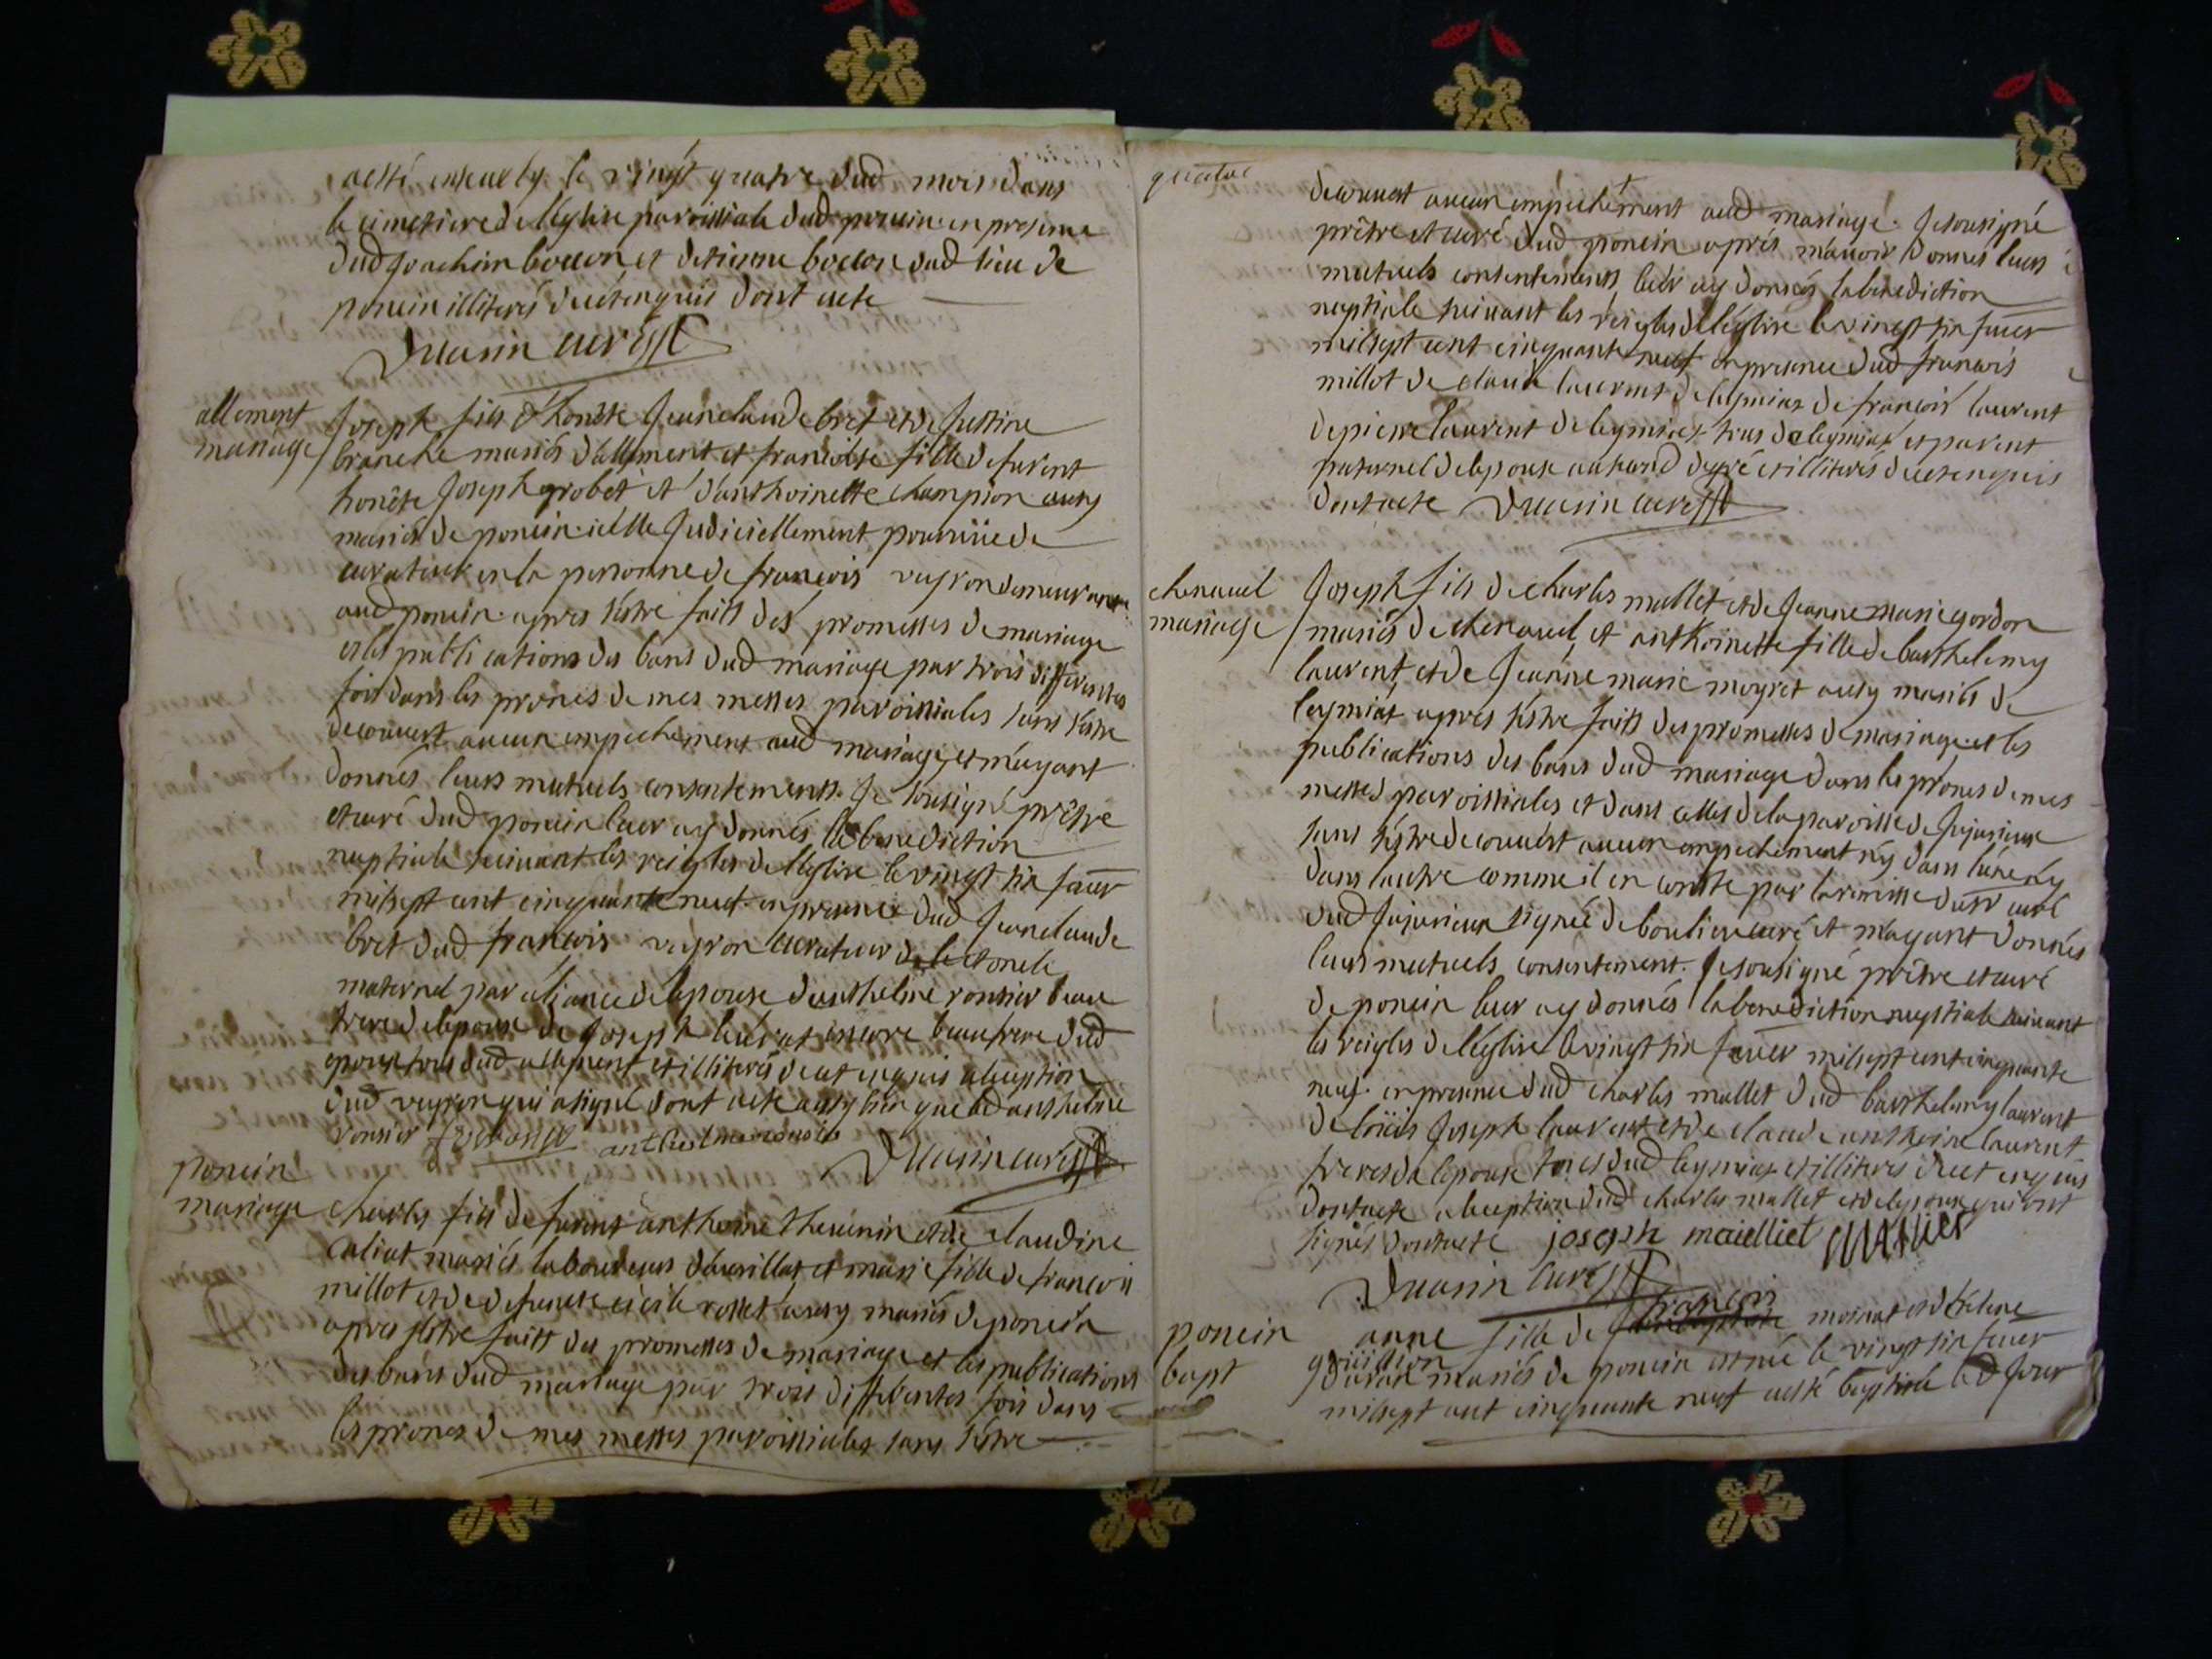 aesté ensevely le vingt quatre dud mois dans
le cimetiere de léglise paroissiale dud poncin en presence
dud Joachim bollon et detienne bollon dud lieu de
poncin illiterés decetenquis dont acte
curé
allement
mariage
Joseph fils d'honête Jeanclaude bret et de Justine
branche mariés dallement et francoise fille defurent
honête Joseph grobet et d'anthoinette champion aussy
mariés de poncin icelle Judiciellement pourvüe de
curateur en la personne de francois veyron demeurant
aud poncin apres s'estre faitt des promesses de mariage
et les publications des bans dud mariage par trois differentes
fois dans les prones de mes messes paroissiales sans s'estre
decouvert aucun empechement aud mariage et m'ayant
donnés leurs mutuels consentements. Je sousigné prêtre
et curé dud poncin leur ay donnés la benediction
nuptiale suivant les reigles de léglise le vingt six fevr
milsept cent cinquante neuf en presence dud Jeanclaude
bret dud francois veyron curateur de et oncle
maternel par aliance delepouse danthelme ronsier beau
frere delepouse de Joseph encore beaufrere dud
epoux tous dud allement et illiterés decetenquis aleception
dud veyron qui asigné dont acte aussy bien que led anthelme
ronsier
curé
poncin
mariage
charles fils de furent anthoine thevenin et de claudine
caliat mariés laboureurs et marie fille de francois
millot et de defuncte cecile rosset aussy mariés de poncin
apres s'estre faitt des promesses de mariage et les publications
des bans dud mariage par trois differentes fois dans
les prones de mes messes paroissiales sans s'estre
quatre
decouvert aucun empechement aud mariage. Je sousigné
prêtre et curé dud poncin aprés m'avoir donnés leurs
mutuels consentements leur ay donnés la benediction
nuptiale suivant les reigles de léglise le vingt six fevier
milsept cent cinquante neuf en presence dud francois
millot de claude laurent de leymiat de francois laurent
de pierre laurent de leymiat tous de leymiat et parent
paternel delepouse ausecond degré et illiterés decetenquis
dont acte curé
chenavel
mariage
Joseph fils de charles mallet et de Jeanne marie gordon
mariés de chenavel et anthoinette fille de barthelemy
laurent et de Jeanne marie moyret aussy mariés de
leymiat apres s'estre faitt des promesses de mariage et les
publications des bans dud mariage dans les prones de mes
messes paroissiales et dans celles de la paroisse de Jujurieux
sans s'estre decouvert aucun empechement ny dans lune ny
dans lautre comme il en conste par la remisse du sr curé
dud Jujurieux signée de boulieu curé et m'ayant donnés
leurs mutuels consentement. Je sousigné prêtre et curé
de poncin leur ay donnés la benediction nuptiale suivant
les reigles de léglise le vingt six fevier milsept cent cinquante
neuf en presence dud charles mallet dud barthelemy laurent
de loüis Joseph laurent et de claude anthoine laurent
freres de lepouse tous dud leymiat et illiterés decet enquis
dont acte aleception dud charles mallet et delepoux qui ont
signés dont acte joseph maielliet
curé
poncin
bapt
anne fille de francois morat et dhelene
mariés de poncin est née le vingt six fevier
milsept cent cinquante neuf aesté baptisé led jour